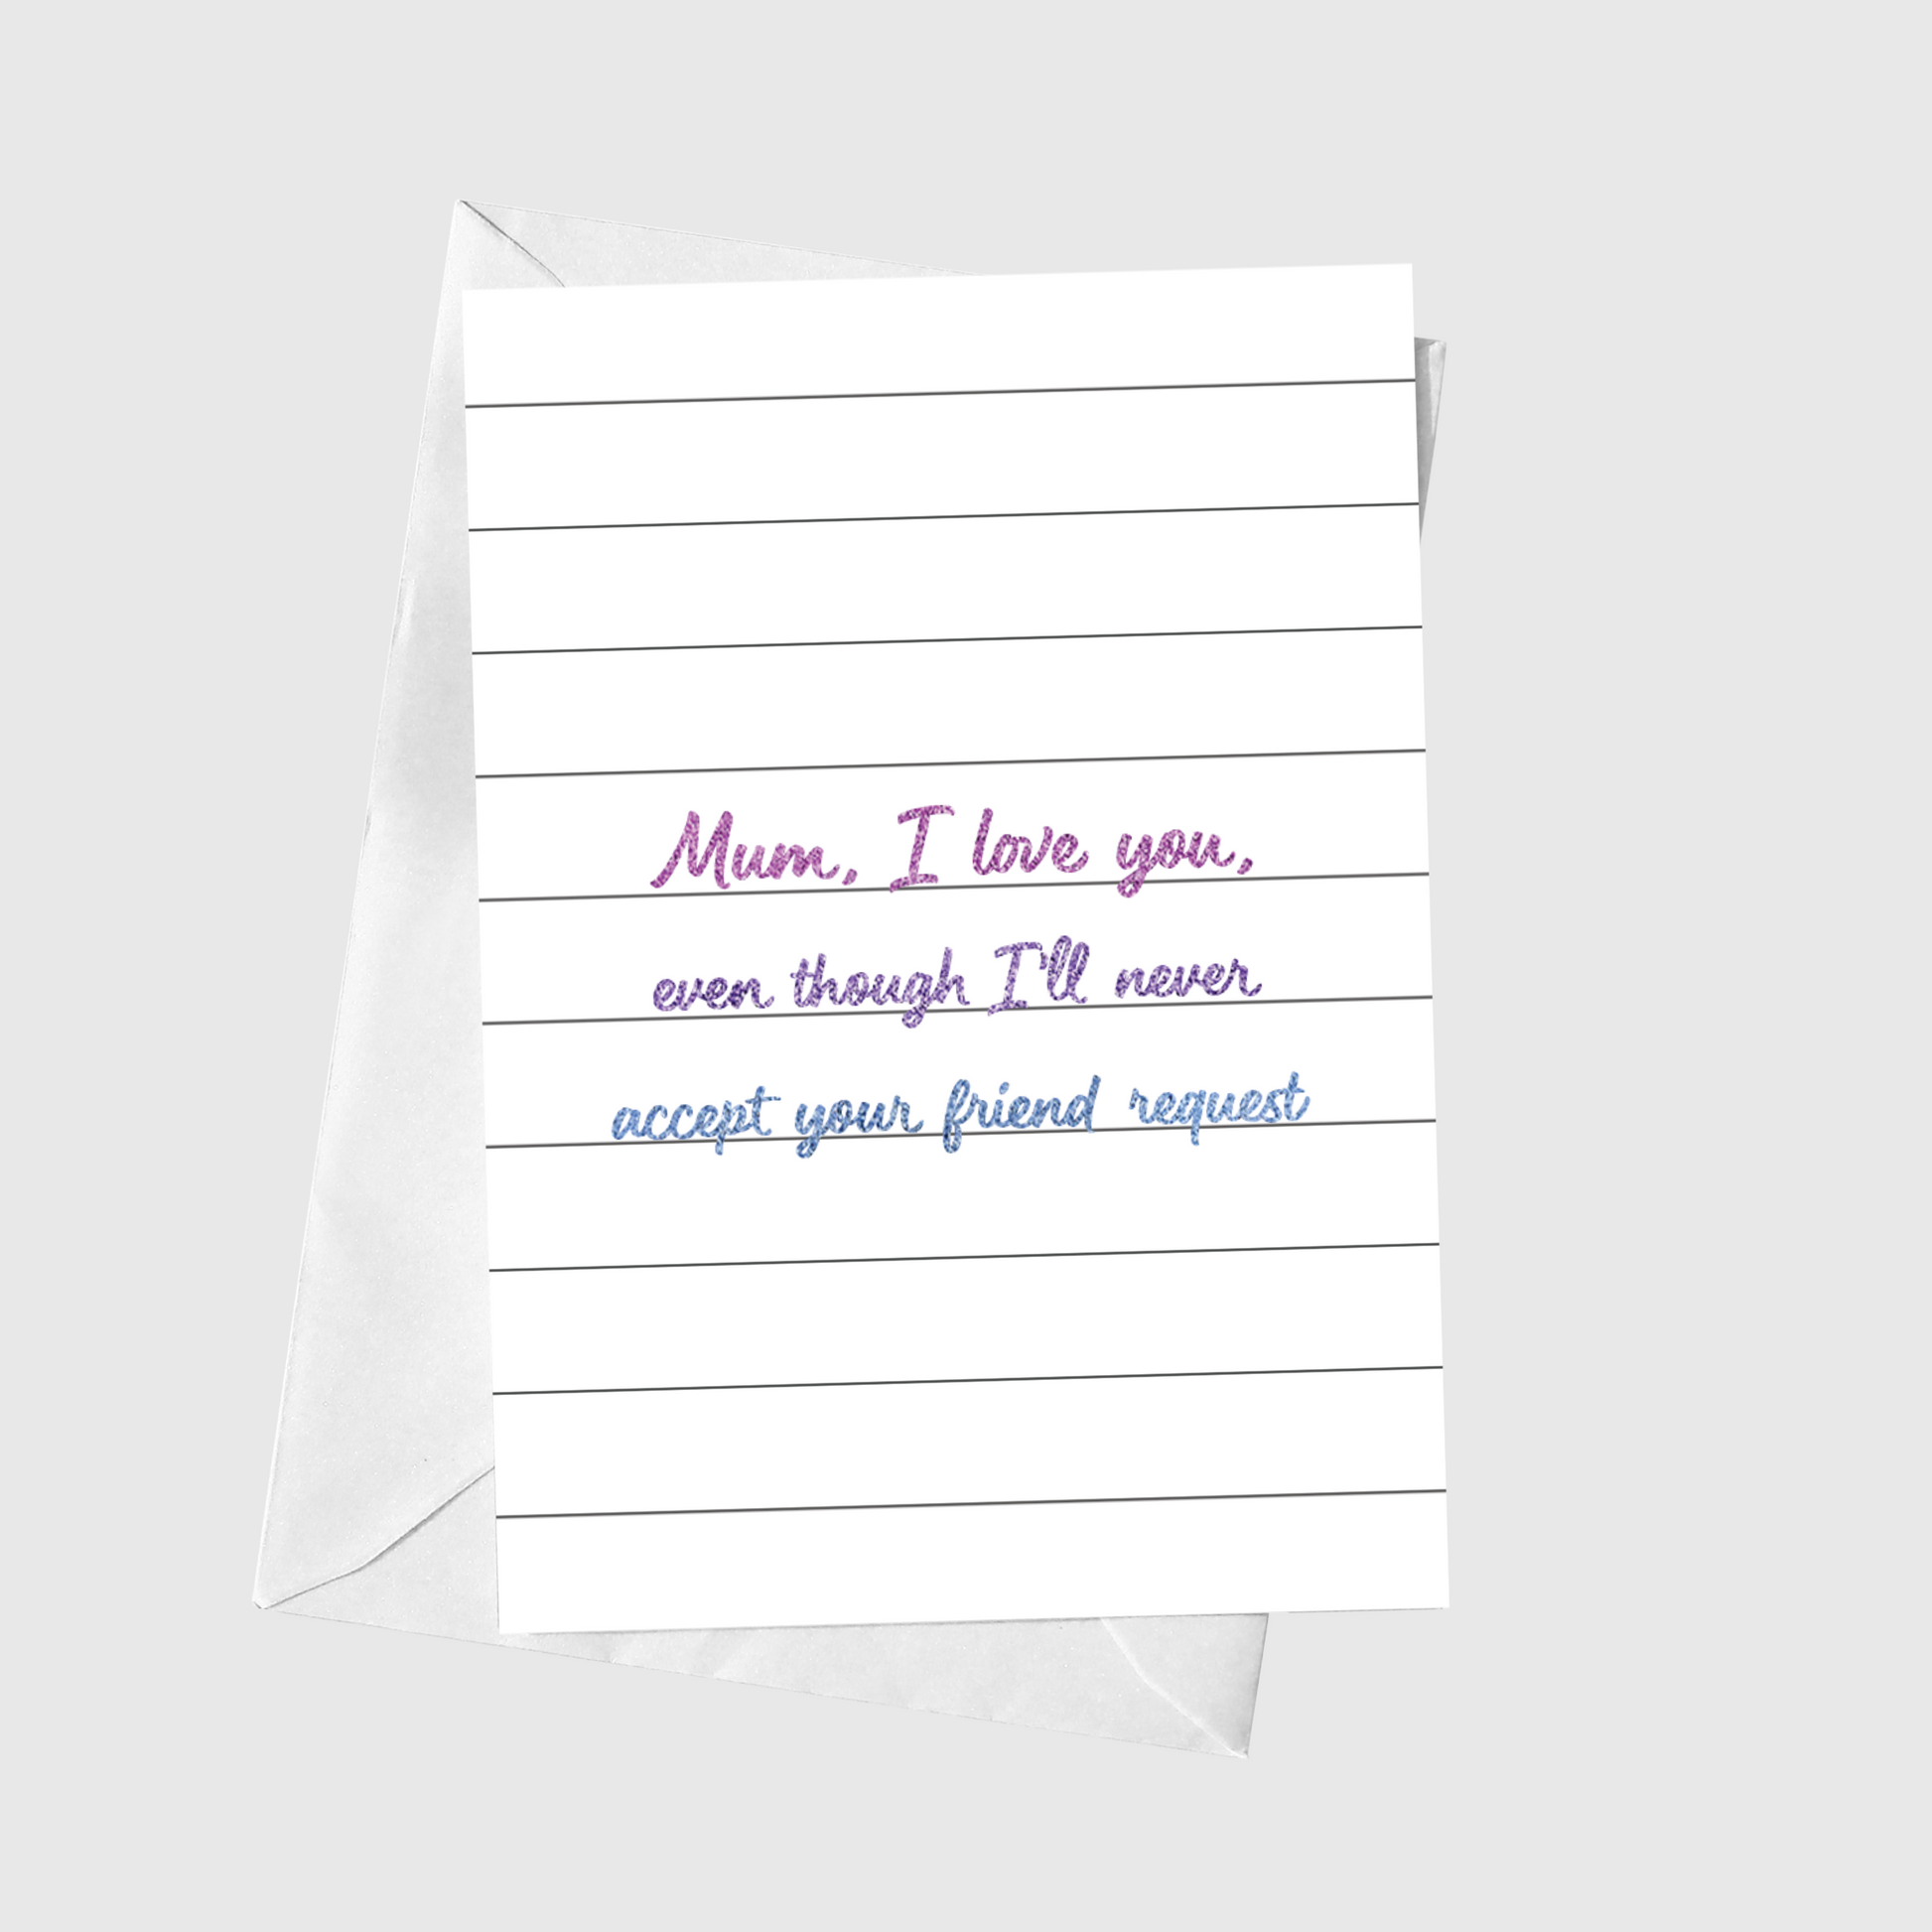 Mum, I love you,
even though I'll never
accept your friend request